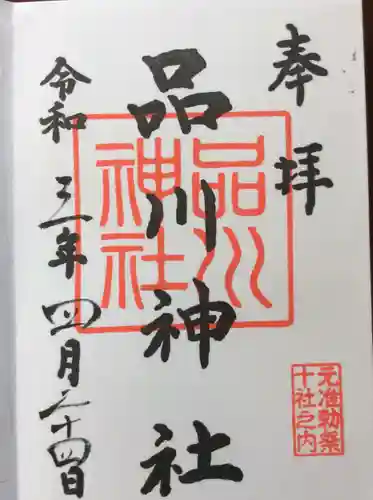 奉拝
品川神社
品川
神社
元准勅祭
十社之内
令和三年四月二十四日